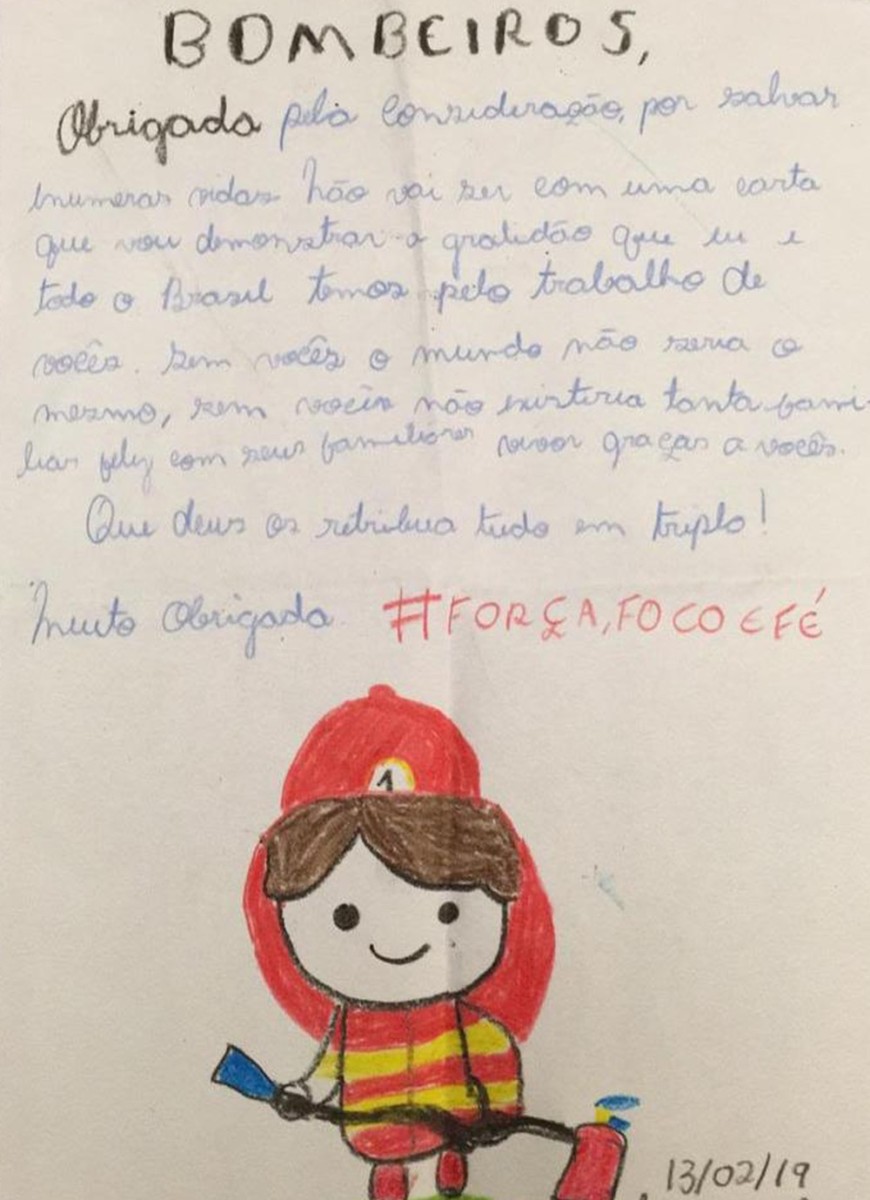 BOMBEIROS,
Obrigada pela consideração, por salvar
inumeras vidas não vai ser com uma carta
que vou demonstrar a gratidão que eu e
todo o Brasil temos pelo trabalho de
vocês. Sem vocês o mundo não seria o
mesmo, sem vocês não existiria tanta fami-
lias feliz com seus familiares vivos graças a vocês.
Que deus os retribua tudo em triplo!
Muito Obrigada #FORÇA, FOCO E FÉ
1
13/02/19